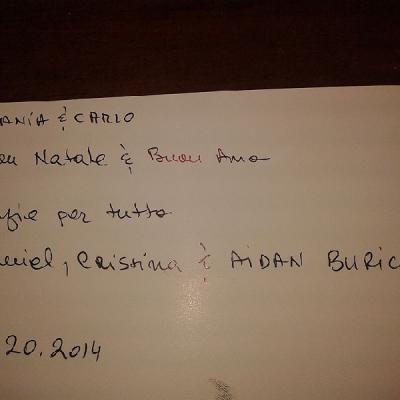 ANIA & CARLO
Natale & Buon Anno
per tutto
Cristina & AIDAN BURIC
20.2014